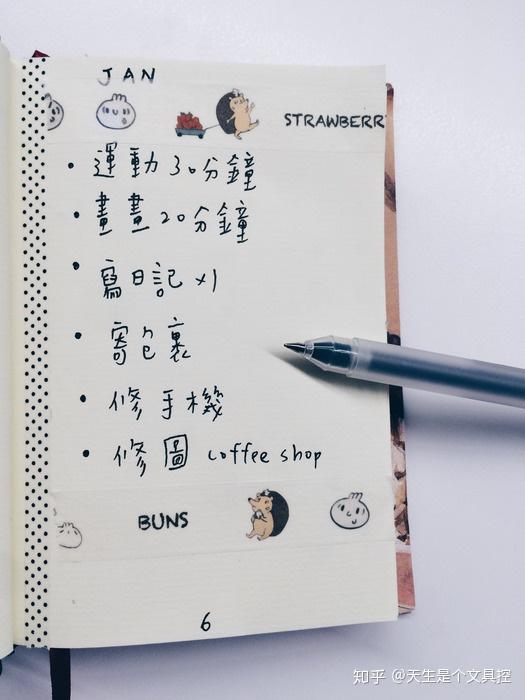 JAN
STRAWBERR
• 運動30分鐘
• 畫畫20分鐘
• 寫日記 x1
• 寄包裹
• 修手機
• 修圖 coffee shop
BUNS
6
知乎 @天生是个文具控